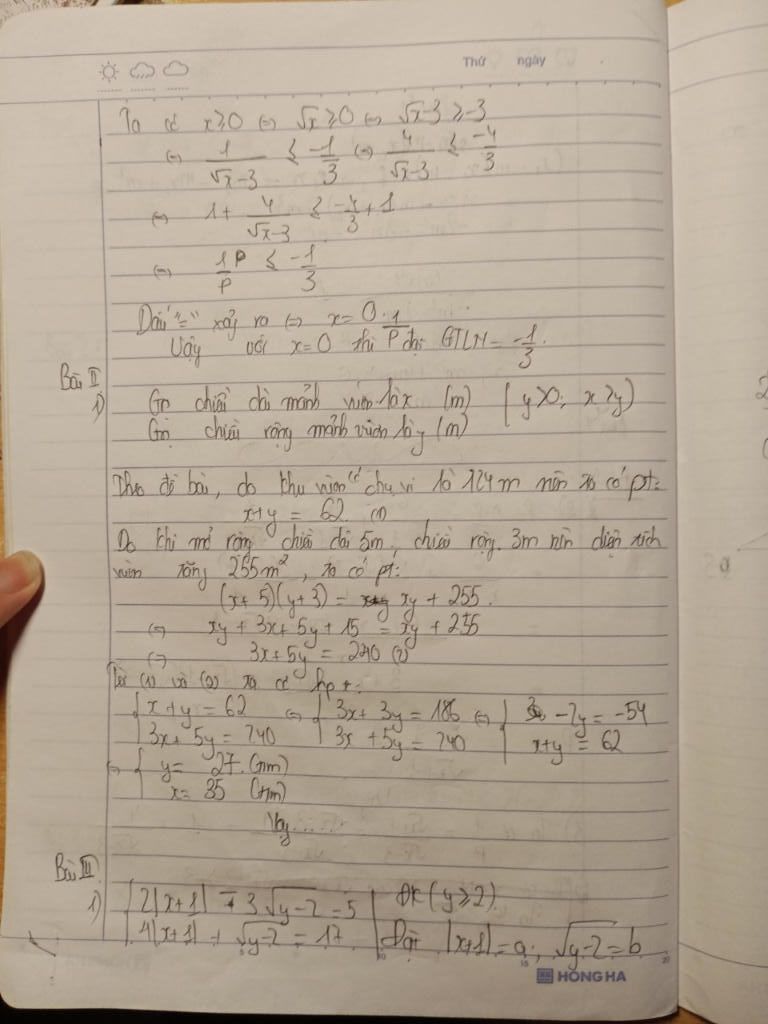 Thứ ngày
Ta có x≥0 ⇔ √x ≥0 ⇔ √x-3 ≥ -3
⇔ 1/(√x-3) ≤ -1/3 ⇔ 4/(√x-3) ≤ -4/3
⇔ 1+ 4/(√x-3) ≤ -4/3 + 1
⇔ 1/P ≤ -1/3
Dấu "=" xảy ra ⇔ x=0.
Vậy với x=0 thì 1/P đạt GTLN = -1/3.
Bài II
1) Gọi chiều dài mảnh vườn là x (m) (y>0; x>y)
Gọi chiều rộng mảnh vườn là y (m)
Theo đề bài, do khu vườn có chu vi là 124m nên ta có pt:
x+y = 62 (1)
Do khi mở rộng chiều dài 5m, chiều rộng 3m nên diện tích
vườn tăng 255m², ta có pt:
(x+5)(y+3) = xy + 255.
⇔ xy + 3x + 5y + 15 = xy + 255
⇔ 3x+5y = 240 (2)
Từ (1) và (2) ta có hpt:
{ x+y = 62 ⇔ { 3x+3y = 186 ⇔ { -2y = -54
3x+5y = 240 3x+5y = 240 x+y = 62
⇔ { y= 27 (tm)
x= 35 (tm)
Vậy......
Bài III
1) { 2|x+1| - 3√y-2 = 5 ĐK (y≥2)
4|x+1| + √y-2 = 17 Đặt |x+1|=a; √y-2 = b
HỒNG HÀ